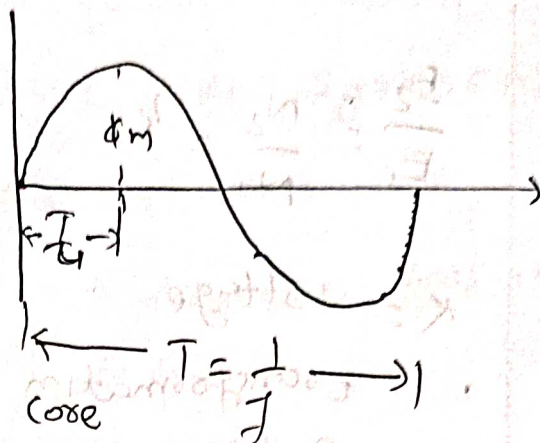 ϕm
T/4
T = 1/f
core